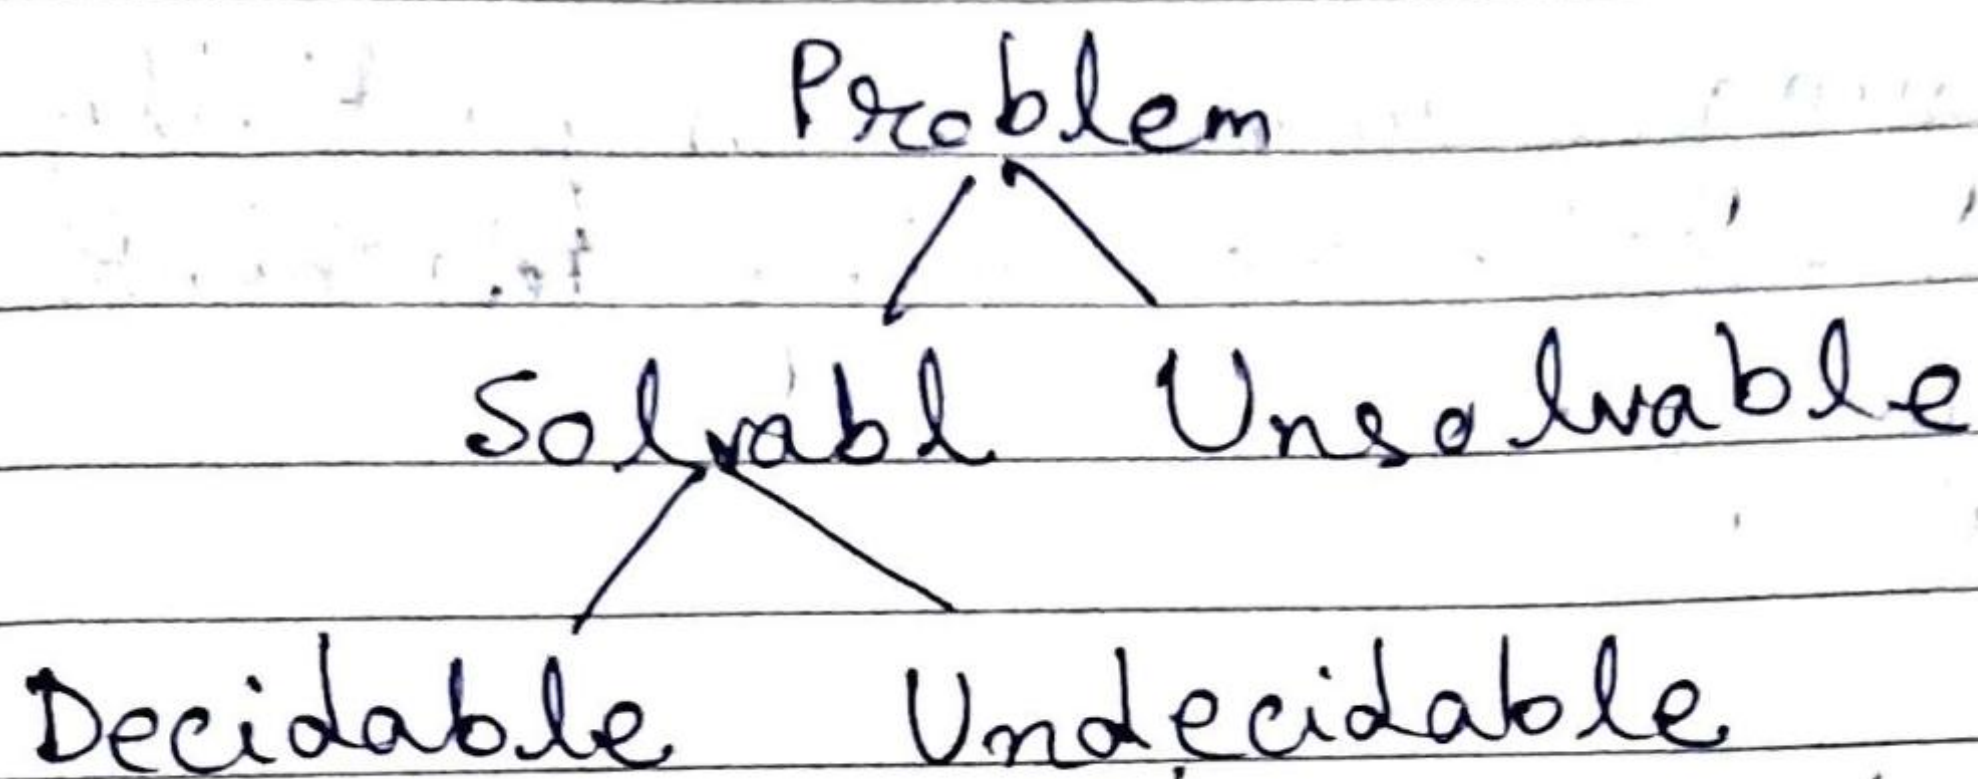 Problem
Solvabl Unsolvable
Decidable Undecidable